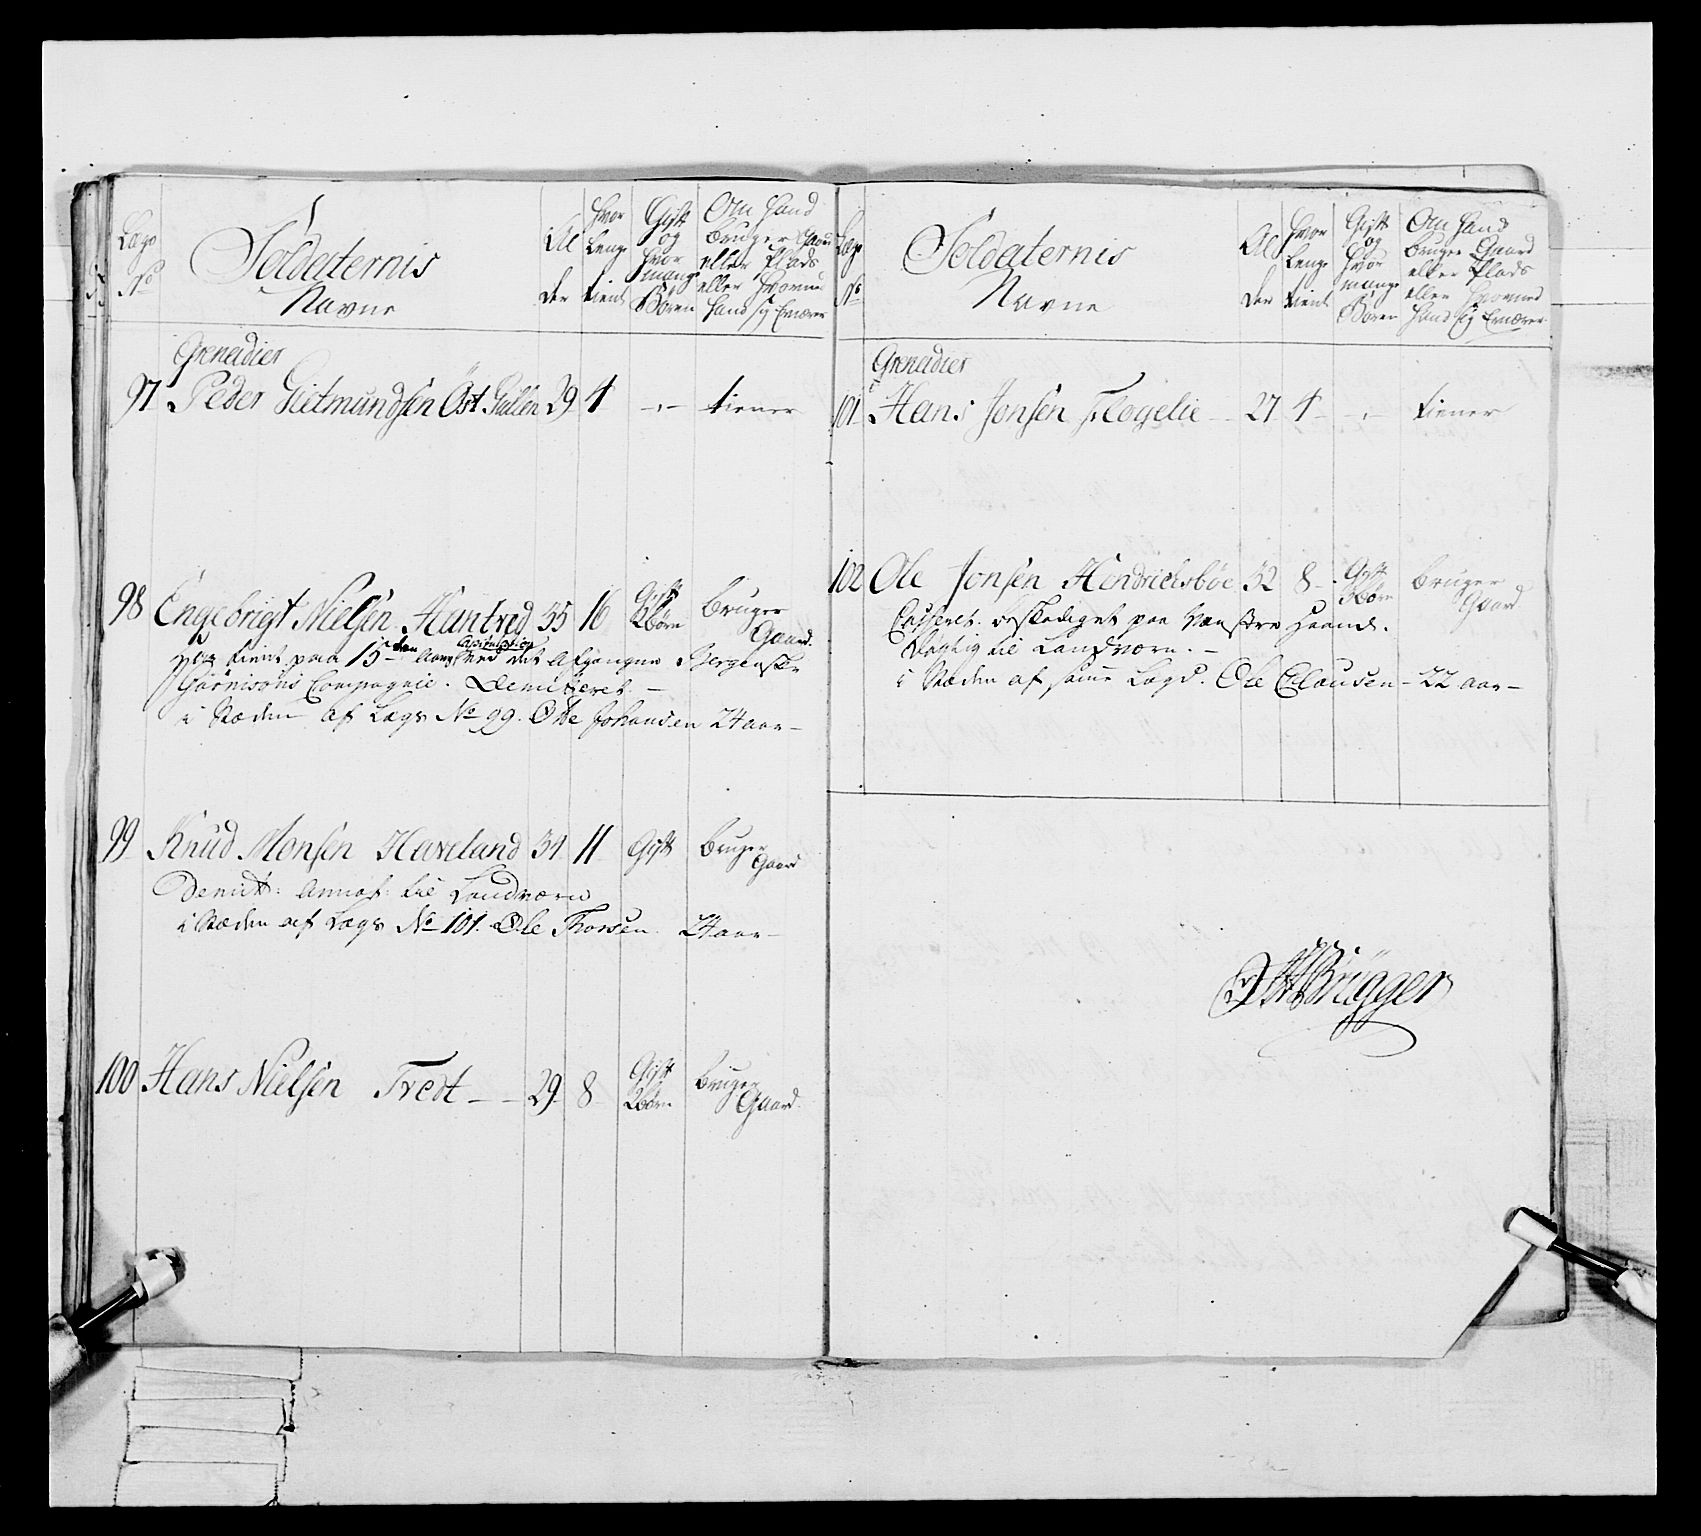 Lægs No
Soldaternis Navne
Al der
Hvor lenge tient
Gift og hvor mange Børen
Om hand bruger Gaard eller Plads eller hvormed hand sig Ernærer
Grenadier
97 Peder Gietmundsen Øst Gullen 29 4 -,- tiener
98 Engebrigt Nielsen Hantved 35 16 Gift 2 børn bruger Gaard
tient paa 15den Aar Capitulation ved det Afgangne Bergenske
Garnisons Compagnie. Demitteret.
i Stæden af Lægs No 99. Otte Johansen 24 aar
99 Knud Monsen Haveland 34 11 Gift bruger Gaard
Demitt: Annot: til Landværn
i Stæden af Lægs No 101. Ole Thorsen 24 aar
100 Hans Nielsen Tredt 29 8 Gift 2 børn bruger Gaard
Lægs No
Soldaternis Navne
Al der
Hvor lenge tient
Gift og hvor mange Børen
Om hand bruger Gaard eller Plads eller hvormed hand sig Ernærer
Grenadier
101 Hans Jonsen Flogelie 27 4 -,- tiener
102 Ole Jonsen Hendrichsbøe 32 8 Gift 3 børn bruger Gaard
Casseret. beskadiget paa Venstre Haand.
Dygtig til Landværn.
i Stæden af samme Lægd. Ole Clausen 22 aar
Brügger